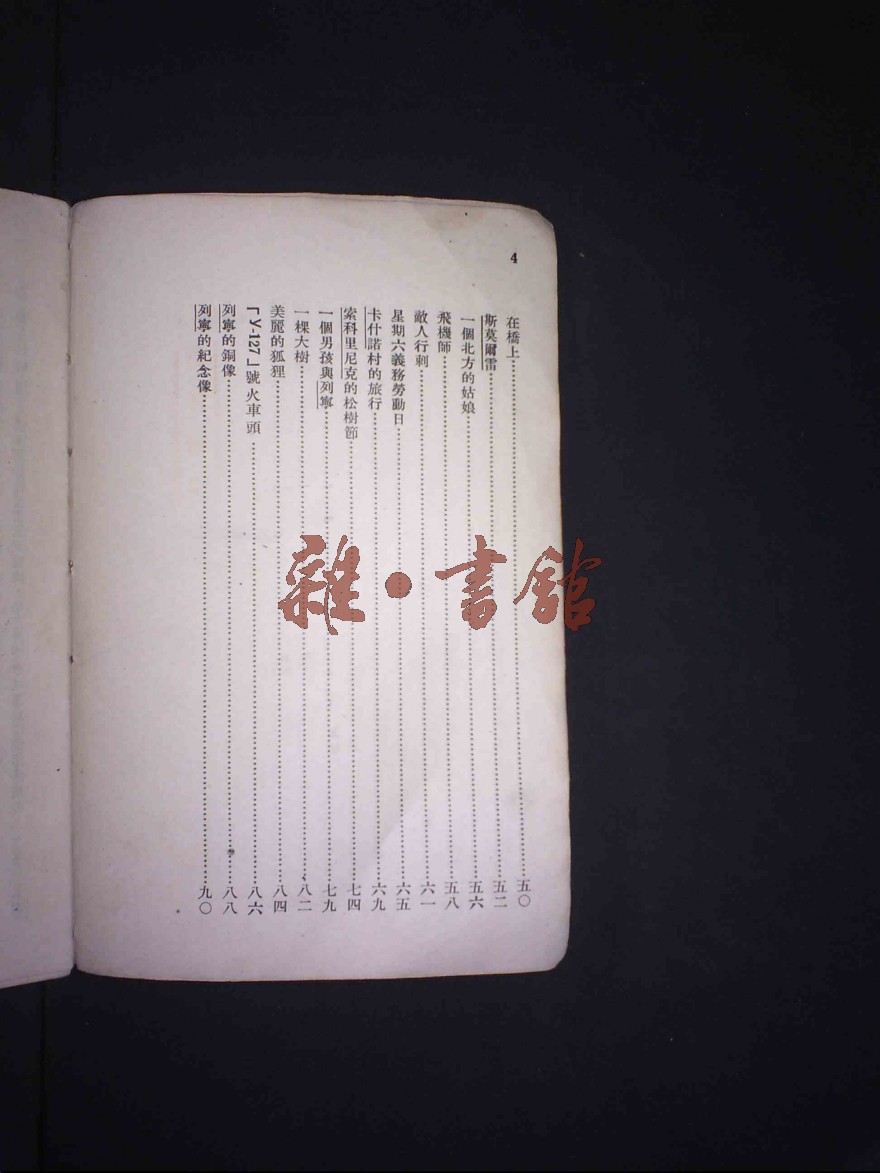 4
在橋上……五〇
斯莫爾雷……五二
一個北方的姑娘……五六
飛機師……五八
敵人行刺……六一
星期六義務勞動日……六五
卡什諾村的旅行……六九
索科里尼克的松樹節……七四
一個男孩與列寧……七九
一棵大樹……八二
美麗的狐狸……八四
「У-127」號火車頭……八六
列寧的銅像……八八
列寧的紀念像……九〇
雜·書館